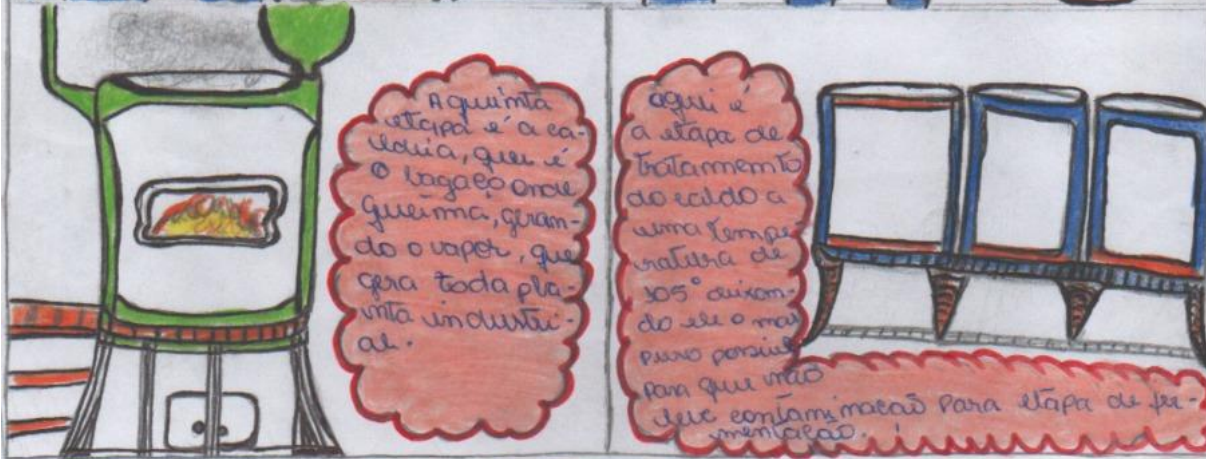 A quinta
etapa é a ca-
ldeira, que é
o bagaço onde
queima, geran-
do o vapor, que
gera toda pla-
nta industri-
al.
aqui é
a etapa de
tratamento
do caldo a
uma tempe
ratura de
105° deixan-
do ele o mas
puro possivel
para que não
leve contaminação para etapa de fer-
mentação.